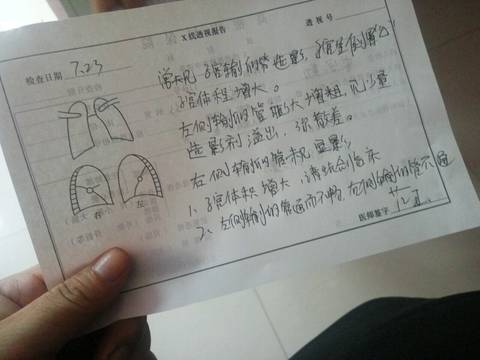 X线透视报告
检查日期 7.23
透视号
常规子宫输卵管造影,子宫
子宫体积增大。
左侧输卵管 增粗,见少量
造影剂溢出,弥散差。
右侧输卵管 显影
1、子宫体积增大,请结合临床
2、左侧输卵管通而不畅,右侧输卵管不通
右 左
医师签字